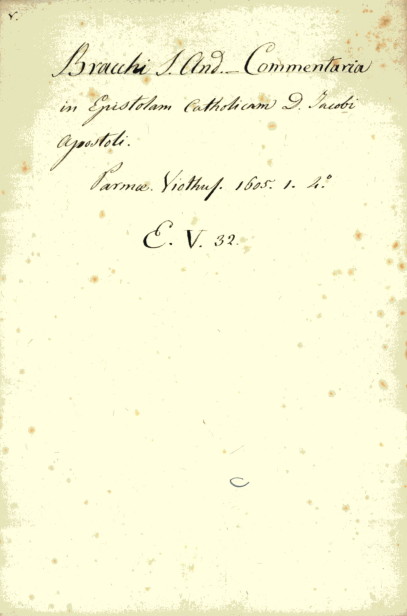 v.
Bracchi J. And. – Commentaria
in Epistolam Catholicam D. Jacobi
Apostoli.
Parmæ. Viothus. 1605. 1. 4.°
E. V. 32.